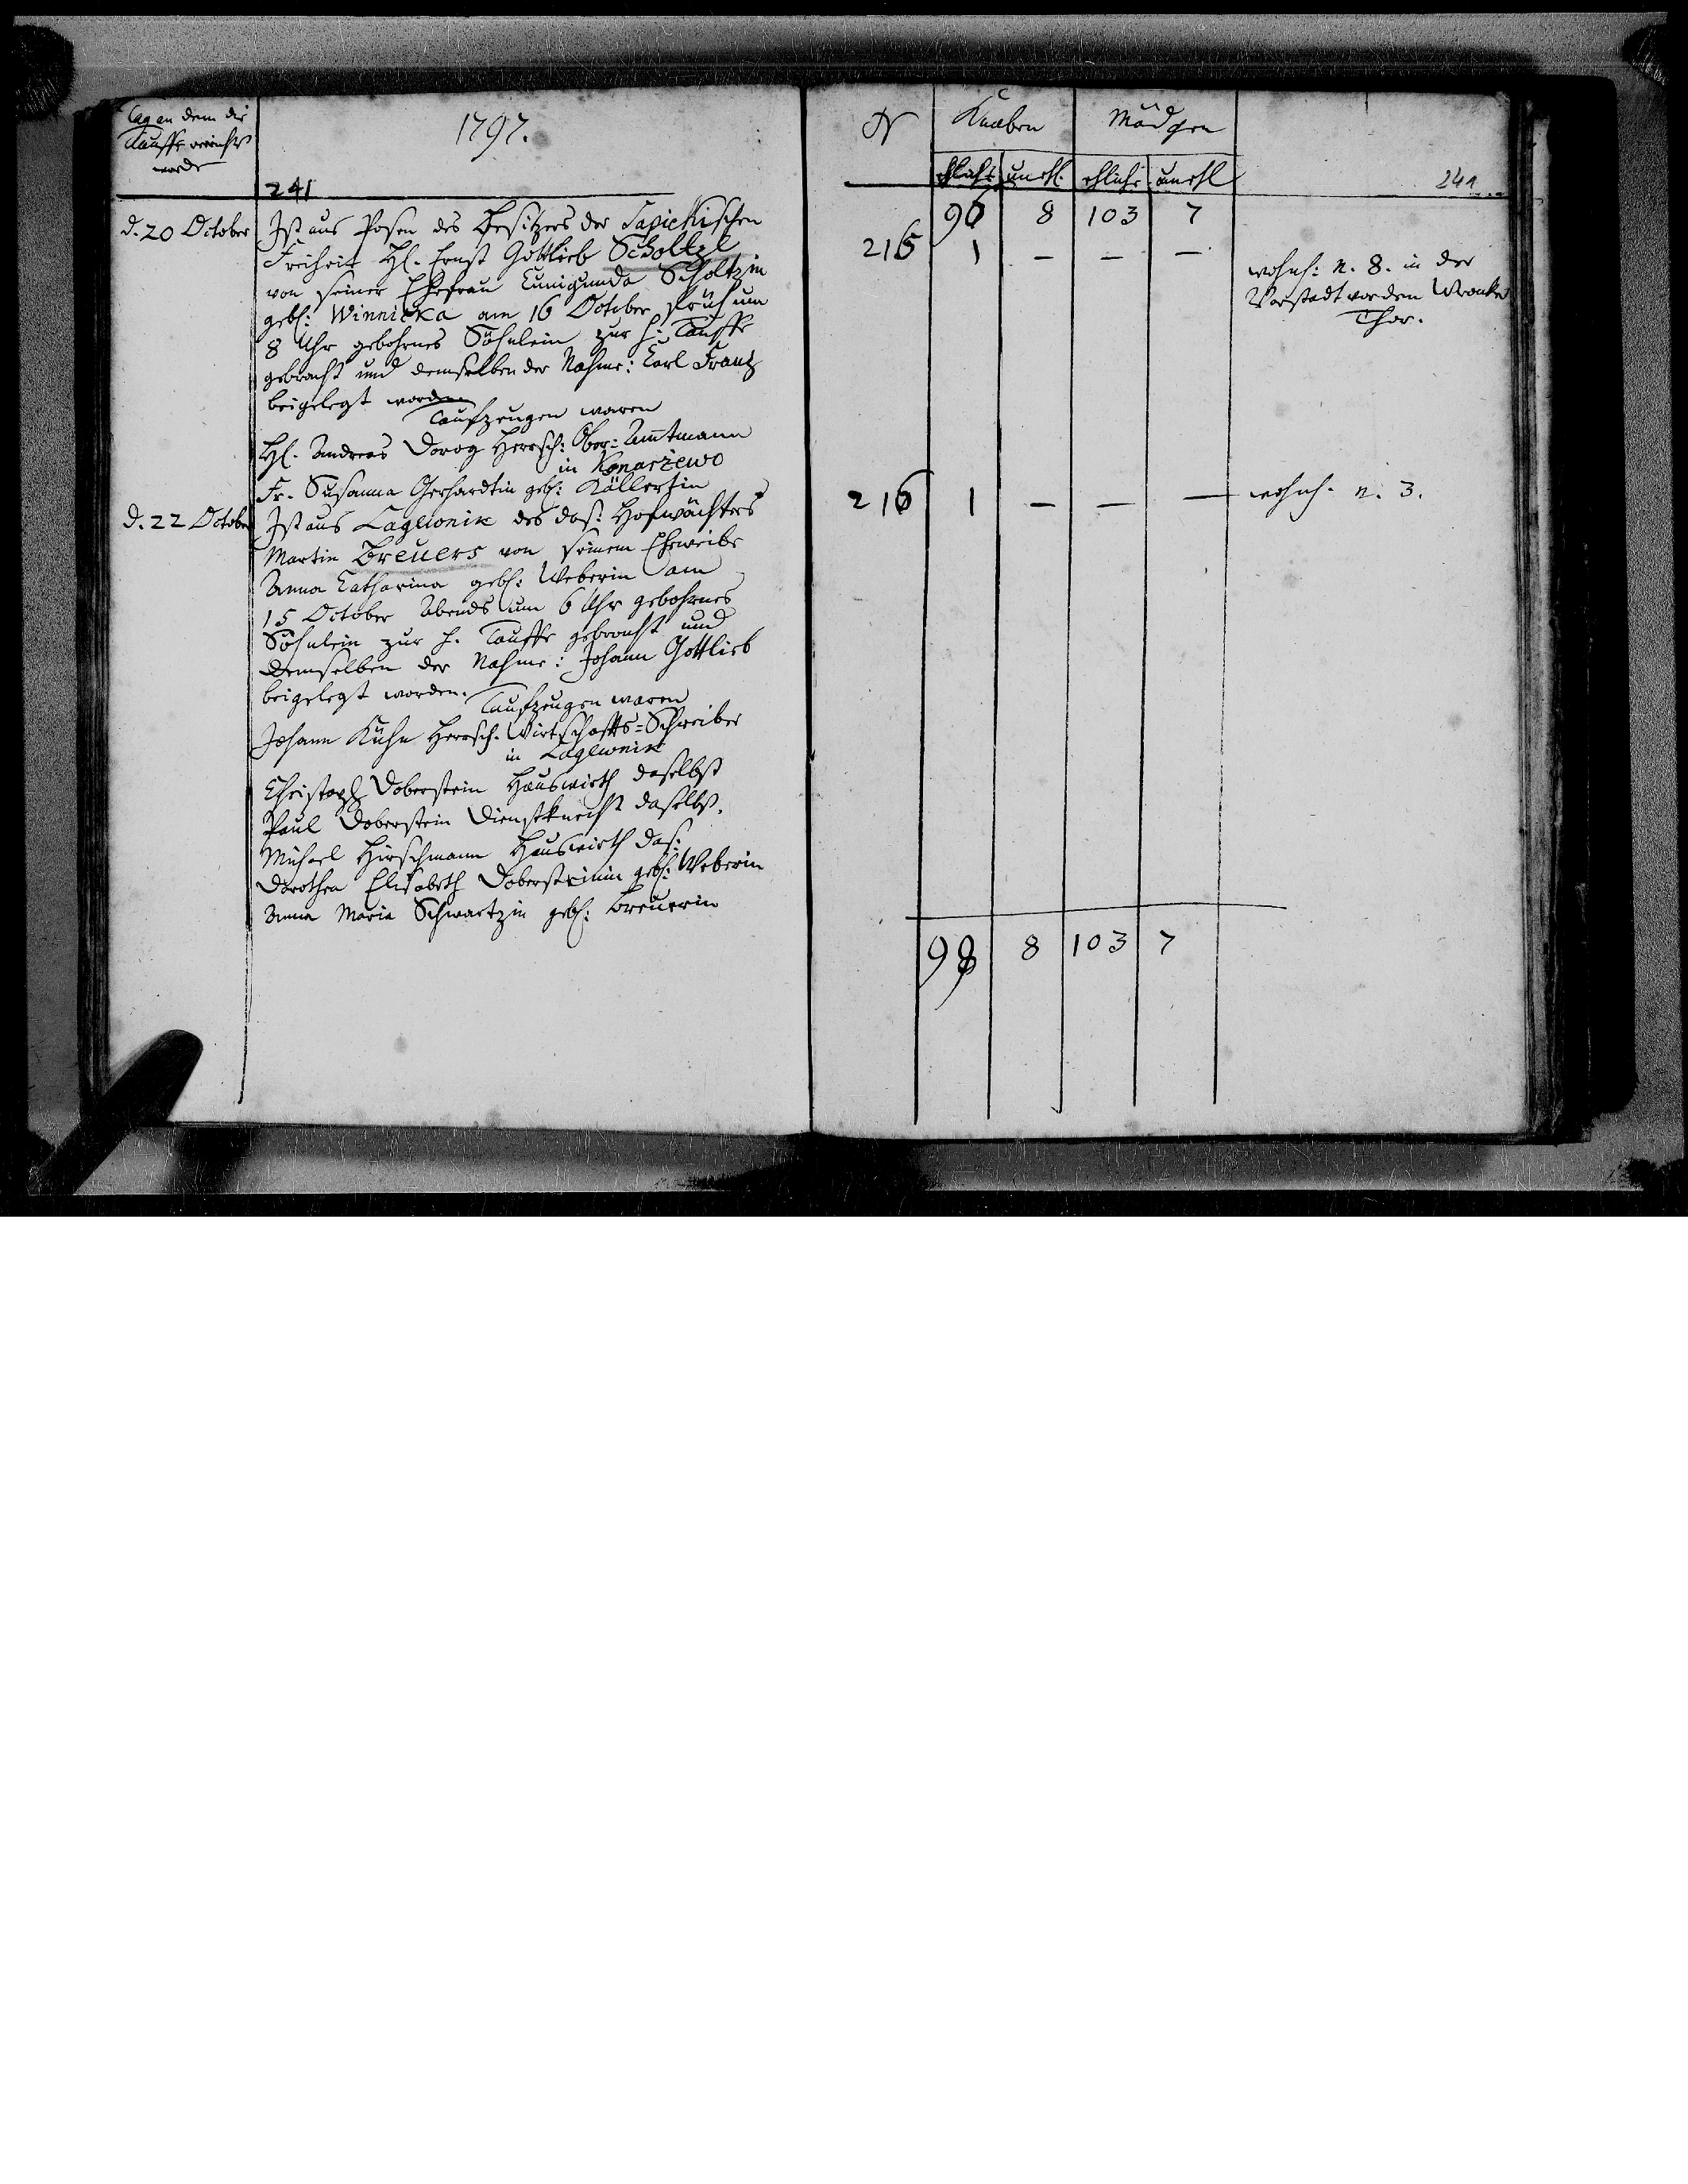 Tag an dem die
Tauffe verricht
worde
1797.
241
d. 20 October
Ist aus Posen des Besitzers der Sapiehischen
Freiheit H. Ernst Gottlieb Scholtze
von seiner Ehefrau Cunigunda Scholtzin
geb: Winnicka am 16 October früh um
8 Uhr gebohrnes Söhnlein zur h: Tauffe
gebracht und demselben der Nahme: Carl Frantz
beigelegt worden
Taufzeugen waren
H. Andreas Dorog Herrsch: Ober-Amtmann
in Konarzewo
Fr. Susanna Gerhardtin geb: Köllertin
d. 22 October
Ist aus Lagiewnik des das: Hofwächters
Martin Breuers von seinem Eheweibe
Anna Catharina geb: Weberin am
15 October Abends um 6 Uhr gebohrnes
Söhnlein zur h. Tauffe gebracht und
demselben der Nahme: Johann Gottlieb
beigelegt worden.
Taufzeugen waren
Johann Kühn Herrsch. Wirtschaffts-Schreiber
in Lagiewnik
Christoph Doberstein Hauswirth daselbst
Paul Doberstein Dienstknecht daselbst.
Michael Hirschmann Hauswirth das:
Dorothea Elisabeth Dobersteinin geb: Weberin
Anna Maria Schwartzin geb: Breuerin
N Knaben Mädgen
ehliche unehl. ehliche unehl
241
96 8 103 7
215 1 – – –
wohnh: N. 8. in der
Vorstadt vor dem Wronker
Thor.
216 1 – – –
wohnh. N. 3.
98 8 103 7